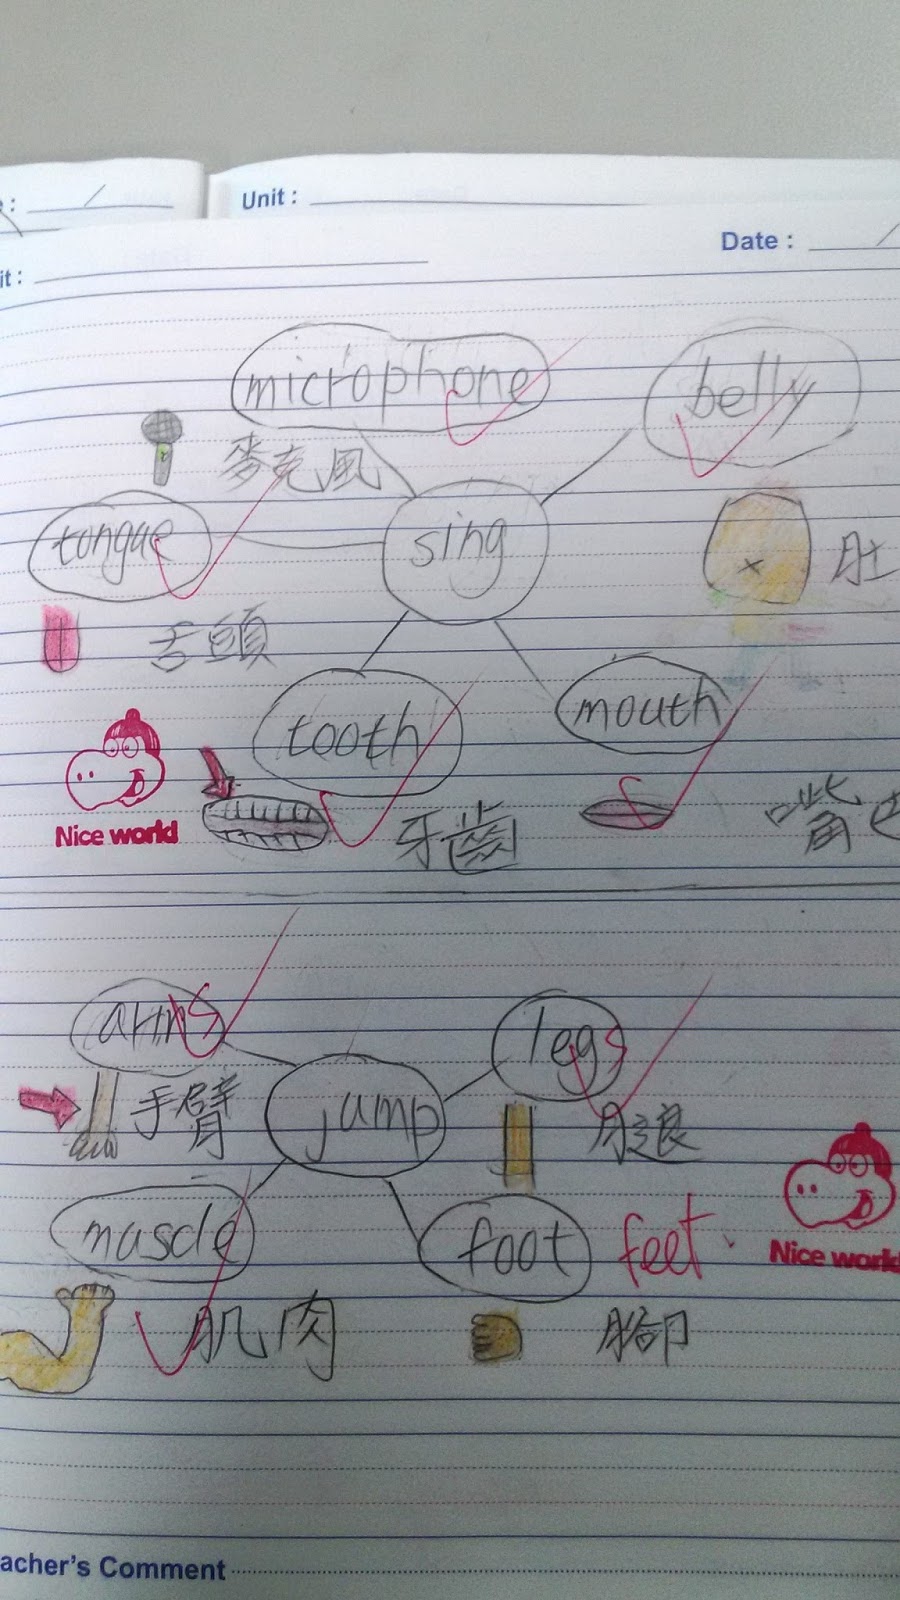 Unit :
Date :
it :
microphone
belly
麥克風
tongue
sing
肚
舌頭
tooth
mouth
Nice world
牙齒
嘴巴
arms
legs
手臂
jump
腿
muscle
foot
feet
Nice world
肌肉
腳
acher's Comment